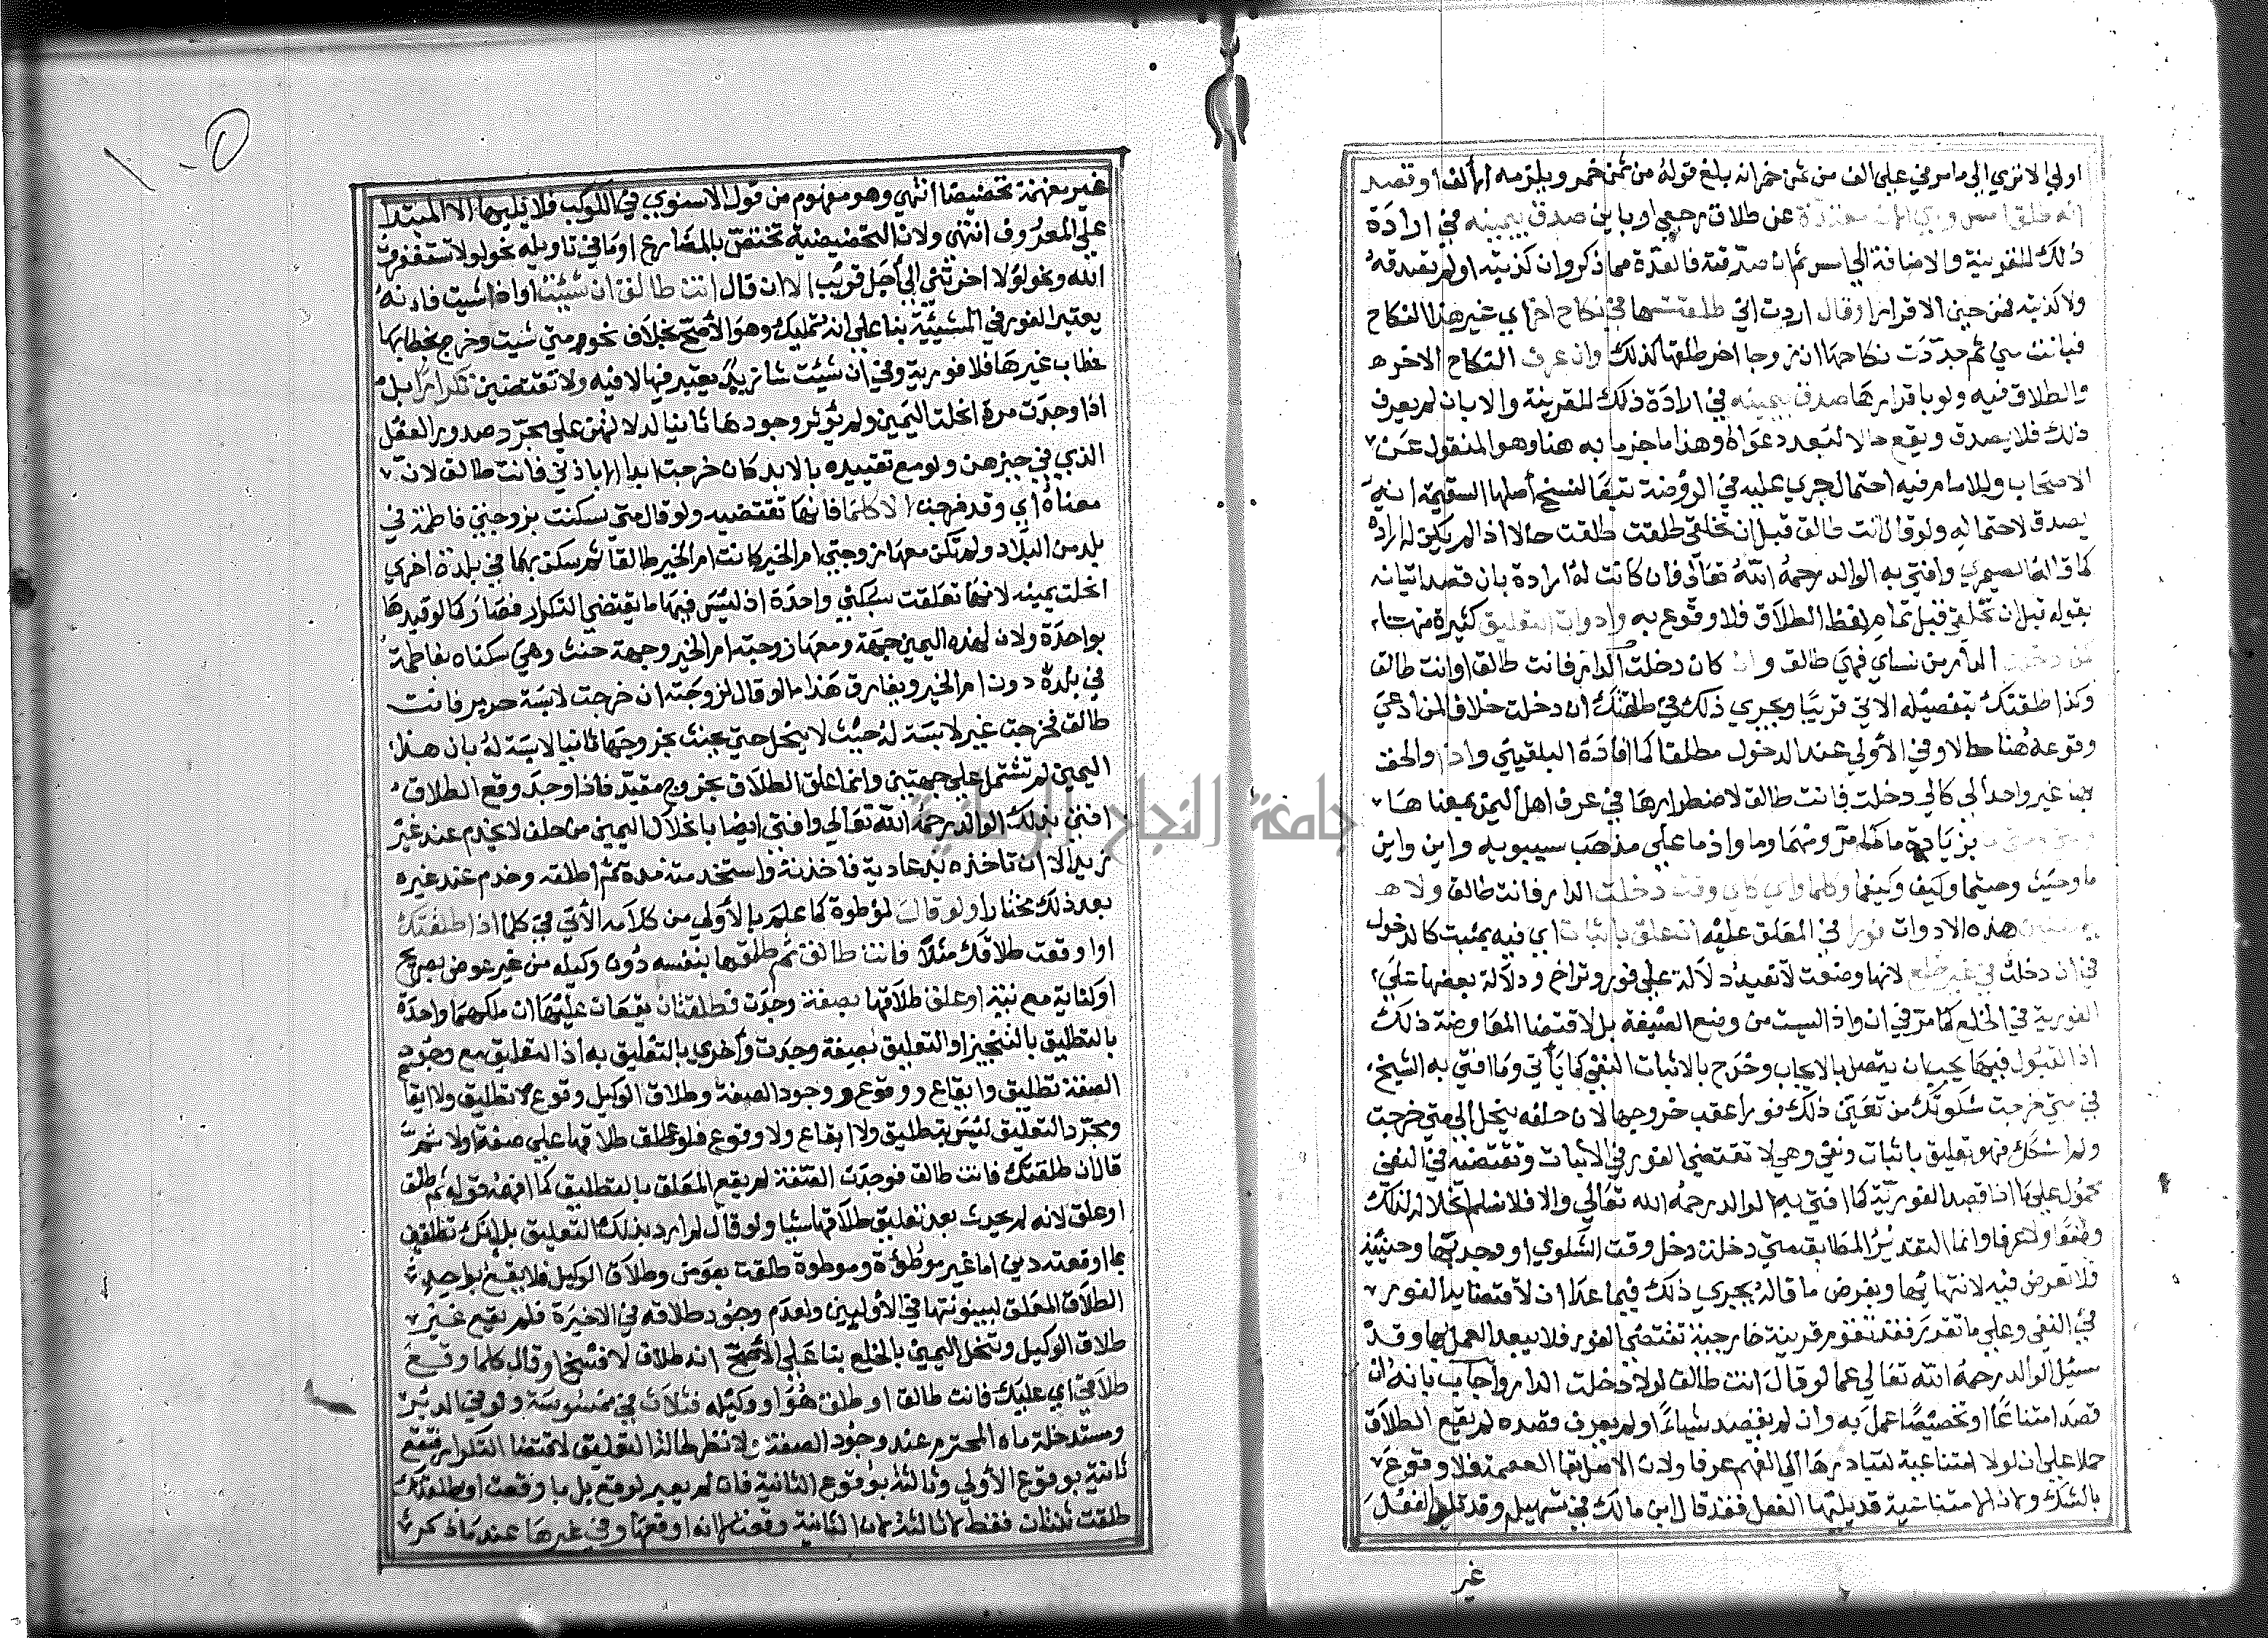 اولي الا تري الي ما مر في علي الف من ثمن خمر انه يلغ قوله من ثمن خمر ويلزمه الالف او قصد
انه طلق امس وهي الان معتدة عن طلاق رجعي او باين صدق بيمينه في ارادة
ذلك للقرينة والاضافة الي امس ثم ان صدقته فالعدة مما ذكر وان كذبته او لم تصدقه
ولا كذبته فمن حين الاقرار او قال اردت اني طلقتها في نكاح اخر اي غير هذا النكاح
فبانت مني ثم جددت نكاحها او ان زوجا اخر طلقها كذلك وان عرف النكاح الاخر ه
والطلاق فيه ولو باقرارها صدق بيمينه في ارادة ذلك للقرينة والا بان لم يعرف
ذلك فلا يصدق ويقع حالا لبعد دعواه وهذا ما جزما به هنا وهو المنقول عن
الاصحاب وللامام فيه احتمال جري عليه في الروضة تبعا لنسخ اصلها السقيمة انه
يصدق لاحتماله ولو قال انت طالق قبل ان تخلقي طلقت حالا اذا لم يكن له ارادة
كما قاله الصيمري وافتي به الوالد رحمه الله تعالي فان كانت له ارادة بان قصد اتيانه
بقوله قبل ان تخلقي قبل تمام لفظ الطلاق فلا وقوع به وادوات التعليق كثيرة منها
من دخلت الدار من نساي فهي طالق وان كان دخلت الدار فانت طالق او انت طالق
وكذا طلقتك بتفصيله الاتي قريبا ويجري ذلك في طلقتك ان دخلت خلافا لمن ادعي
وقوعه هنا حالا وفي الأولي عند الدخول مطلقا كما افاده البلقيني واذا والحق
بها غير واحد الي كالي دخلت فانت طالق لاضطرارها في عرف اهل اليمن بمعناها
ومتي ومتي ما بزيادة ما كما مر ومهما وما واذ ما علي مذهب سيبويه واين واين
ما وحيث وحيثما وكيف وكيفما وكلما واي كاي وقت دخلت الدار فانت طالق ولا ه
يقتضين هذه الادوات فورا في المعلق عليه ان علق باثبات اي فيه بمثبت كالدخول
في ان دخلت في غير خلع لانها وضعت لا تقيد دلالة علي فور وتراخ ودلالة بعضها علي
الفورية في الخلع كما مر في ان واذا ليست من وضع الصيغة بل لاقتضا المعاوضة ذلك
اذ القبول فيها يجب ان يتصل بالايجاب وخرج بالاثبات النفي كما يأتي وما افتي به الشيخ
في متي خرجت شكوتك من تعين ذلك فورا عقب خروجها لان حلفه ينحل الي متي خرجت
ولم اشكك فهو تعليق باثبات ونفي وهي لا تقتضي الفور في الاثبات وتقتضيه في النفي
محمول علي ما اذا قصد الفورية كما افتي به الوالد رحمه الله تعالي والا فلا نسلم انحلاله لذلك
وضعا ولا عرفا وانما التقدير المطابق متي دخلت دخل وقت الشكوي او وجدتها وحينئذ
فلا تعرض فيه لانتهائها وبفرض ما قاله يجري ذلك فيما عدا ان لاقتضائها الفور
في النفي وعلي ما تقدير فقد تقوم قرينة خارجية تقتضي الفور فلا يبعد العمل بها وقد
سئل الوالد رحمه الله تعالي عما لو قال انت طالق لولا دخلت الدار واجاب بانه ان
قصد امتناعا او تحضيضا عمل به وان لم يقصد شياءً او لم يعرف قصده لم يقع الطلاق
حملا علي ان لولا امتناعية لتبادرها الي الفهم عرفا ولان الاصل بقا العصمة فلا وقوع
بالشك ولان الامتناعية قد يليها الفعل فقد قال ابن مالك في تسهيله وقد تلي الفعل
غير
غير مفهمة تحضيضا انتهي وهو مفهوم من قول الاسنوي في الكوكب فلا يليها الا المبتدا
علي المعروف انتهي ولان التحضيضية تختص بالمضارع او ما في تاويله نحو لولا تستغفرون
الله ونحو لولا اخرتني الي اجل قريب الا ان قال انت طالق ان شئت او اذا شيت فانه
يعتبر الفور في المشيئة بنا علي انه تمليك وهو الأصح بخلاف نحو متي شيت وخرج بخطابها
خطاب غيرها فلا فورية وفي ان شئت شا زيد يعتبر فيها لا فيه ولا تقتضين تكرارا بل
اذا وجدت مرة انحلت اليمين ولم يؤثر وجودها ثانيا لدلالتهن علي مجرد صدور الفعل
الذي في حيزهن ولو مع تقييده بالابد كان خرجت ابدا الا باذني فانت طالق لان
معناه اي وقت خرجت الا كلما فانها تقتضيه ولو قال متي سكنت بزوجتي فاطمة في
بلد من البلاد ولم تكن معها زوجتي ام الخير كانت ام الخير طالقا ثم سكن بهما في بلدة اخري
انحلت يمينه لانها تعلقت بسكني واحدة اذ ليس فيها ما يقتضي التكرار فصار كما لو قيدها
بواحدة ولان لهذه اليمين جهة ومعها زوجته ام الخير وجهة حنث وهي سكناه بفاطمة
في بلدة دون ام الخير ويفارق هذا ما لو قال لزوجته ان خرجت لابسة حرير فانت
طالق فخرجت غير لابسة له حيث لا ينحل حتي يحنث بخروجها ثانيا لابسة له بان هذا
اليمين لم تشتمل علي جهتين وانما علق الطلاق بخروج مقيد فاذا وجد وقع الطلاق
افتي بذلك الوالد رحمه الله تعالي وافتي ايضا بانحلال اليمين من حلف لا يخدم عند غير
زيد الا ان تاخذه يد عادية فاخذته واستخدمته مدة ثم اطلقه وخدم عند غيره
بعد ذلك مختارا ولو قال لموطوة كما علم بالأولي من كلامه الأتي في كلما اذا طلقتك
او اوقعت طلاقك مثلا فانت طالق ثم طلقها بنفسه دون وكيله من غير عوض بصريح
او كناية مع نية او علق طلاقها بصفة وجدت فطلقتان يقعان عليها ان ملكهما واحدة
بالتطليق بالتنجيز او التعليق بصيفة وجدت وأخري بالتعليق به اذ التعليق مع وجود
الصفة تطليق وايقاع ووقوع ووجود الصفة وطلاق الوكيل وقوع لا تطليق ولا ايقا
ومجرد التعليق ليس بتطليق ولا ايقاع ولا وقوع فلو علق طلاقها علي صفة اولا ثم
قال ان طلقتك فانت طالق فوجدت الصفة لم يقع المعلق بالتطليق كما افهمه قوله ثم طلق
او علق لانه لم يحدث بعد تعليق طلاقها شيا ولو قال لم ارد بذلك التعليق بل انك تطلقين
بما اوقعته دين اما غير موطوة وموطوة طلقت بعوض وطلاق الوكيل فلا يقع بواحد
الطلاق المعلق لبينونتها في الأوليين ولعدم وجود طلاقه في الاخيرة فلم يقع غير
طلاق الوكيل وتنحل اليمين بالخلع بنا علي الأصح انه طلاق لا فسخ او قال كلما وقع
طلاقي اي عليك فانت طالق او طلق هو او وكيله فثلاث في ممسوسة ولو في الدبر
ومستدخلة ماه المحترم عند وجود الصفة ولا نظر لحالة التعليق لاقتضا التكرار فتقع
ثانية بوقوع الأولي وثالثة بوقوع الثانية فان لم يعبر بوقع بل ما وقعت او طلقتك
طلقت ثنتان فقط لا ثالثة لان الثانية وقعت لا انه اوقعها وفي غيرها عند ما ذكر
جامعة النجاح الوطنية